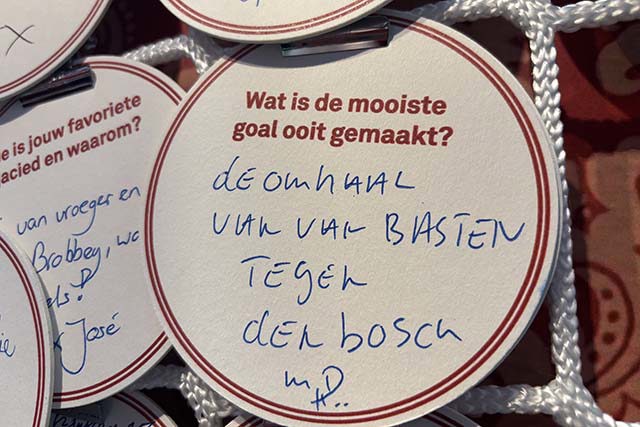 x
e is jouw favoriete
acied en waarom?
van vroeger en
Brobbey, wa
els!
José
Wat is de mooiste
goal ooit gemaakt?
de omhaal
van van Basten
tegen
den bosch